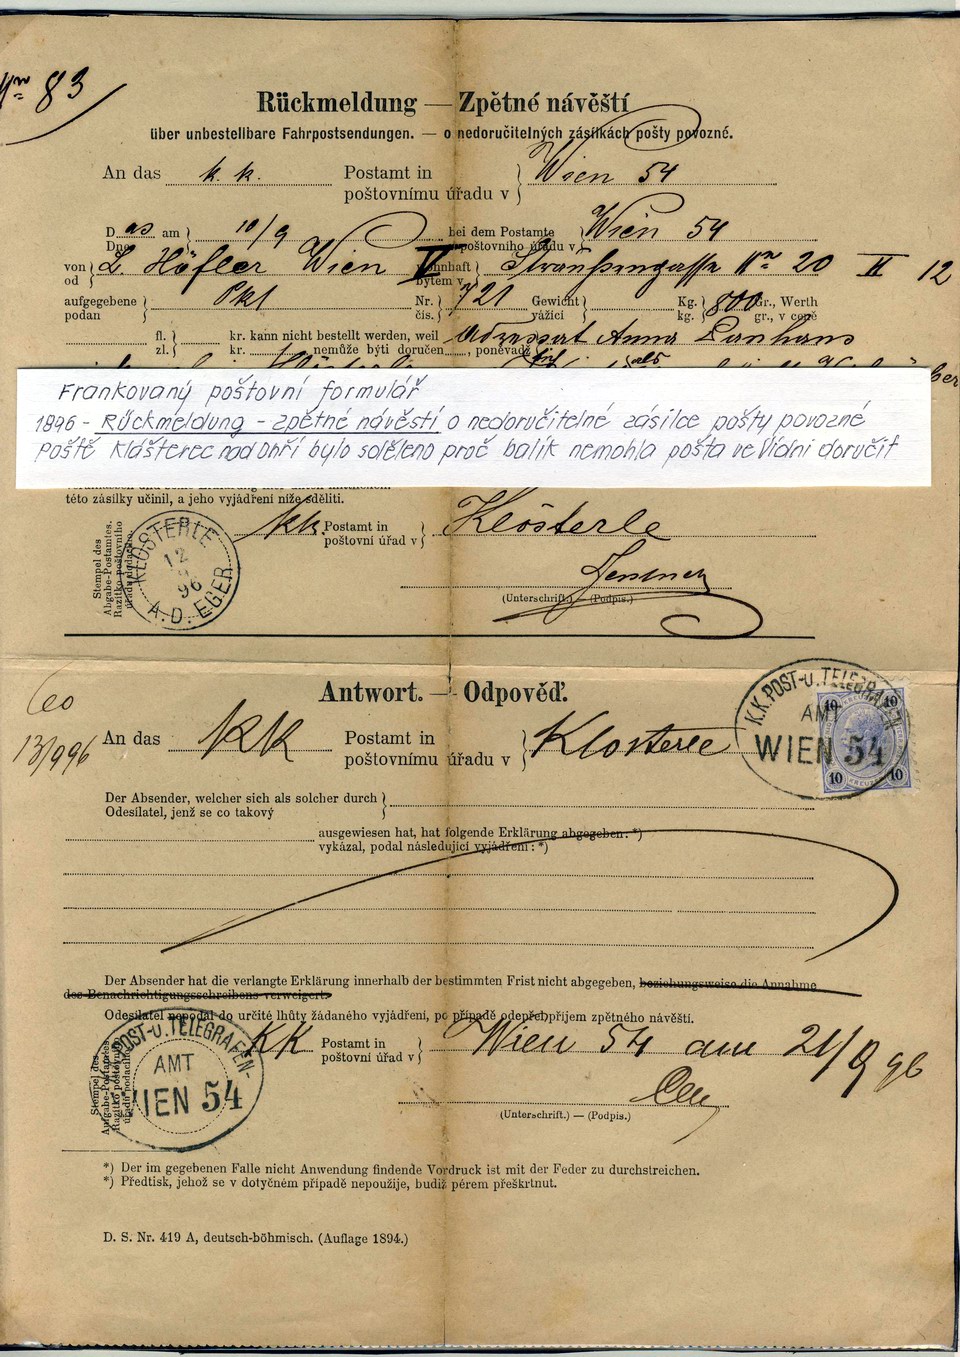 Nro 83
Rückmeldung — Zpětné návěští
über unbestellbare Fahrpostsendungen. — o nedoručitelných zásilkách pošty povozné.
An das k. k. Postamt in Wien 54
poštovnímu úřadu v
Das am 10/9 bei dem Postamte Wien 54
Dne poštovního úřadu v
von L. Höfler Wien V wohnhaft Straußengasse Nro 20 II 12
od bytem v
aufgegebene Pkt Nr. 721 Gewicht Kg. 800 Gr., Werth
podan čís. vážící kg. gr., v ceně
fl. kr. kann nicht bestellt werden, weil Adressat Anna Panhans
zl. kr. nemůže býti doručen, poněvadž
als
Frankovaný poštovní formulář
1896 - Rückmeldung - zpětné návěstí o nedoručitelné zásilce pošty povozné
Poště Klášterec nad Ohří bylo sděleno proč balík nemohla pošta ve Vídni doručit
této zásilky učinil, a jeho vyjádření níže sděliti.
kk. Postamt in Klösterle
poštovní úřad v
Stempel des
Abgabe-Postamtes.
Razítko poštovního
úřadu dodacího
KLÖSTERLE
12
9
96
A. D. EGER
(Unterschrift.) — (Podpis.)
Antwort. — Odpověď.
13/9 96
An das KK Postamt in Klosterle
poštovnímu úřadu v
K.K. POST-U. TELEGRAFEN
AMT
WIEN 54
10 10
10 KREUZER 10
Der Absender, welcher sich als solcher durch
Odesílatel, jenž se co takový
ausgewiesen hat, hat folgende Erklärung abgegeben: *)
vykázal, podal následující vyjádření: *)
Der Absender hat die verlangte Erklärung innerhalb der bestimmten Frist nicht abgegeben, beziehungsweise die Annahme
des Benachrichtigungsschreibens verweigert.
Odesílatel nepodal do určité lhůty žádaného vyjádření, po případě odepřel příjem zpětného návěští.
KK Postamt in Wien 54 am 21/9 96
poštovní úřad v
Stempel des
Aufgabe-Postamtes
Razítko poštovního
úřadu podacího
POST-U. TELEGRAFEN-
AMT
WIEN 54
(Unterschrift.) — (Podpis.)
*) Der im gegebenen Falle nicht Anwendung findende Vordruck ist mit der Feder zu durchstreichen.
*) Předtisk, jehož se v dotyčném případě nepoužije, budiž pérem přeškrtnut.
D. S. Nr. 419 A, deutsch-böhmisch. (Auflage 1894.)